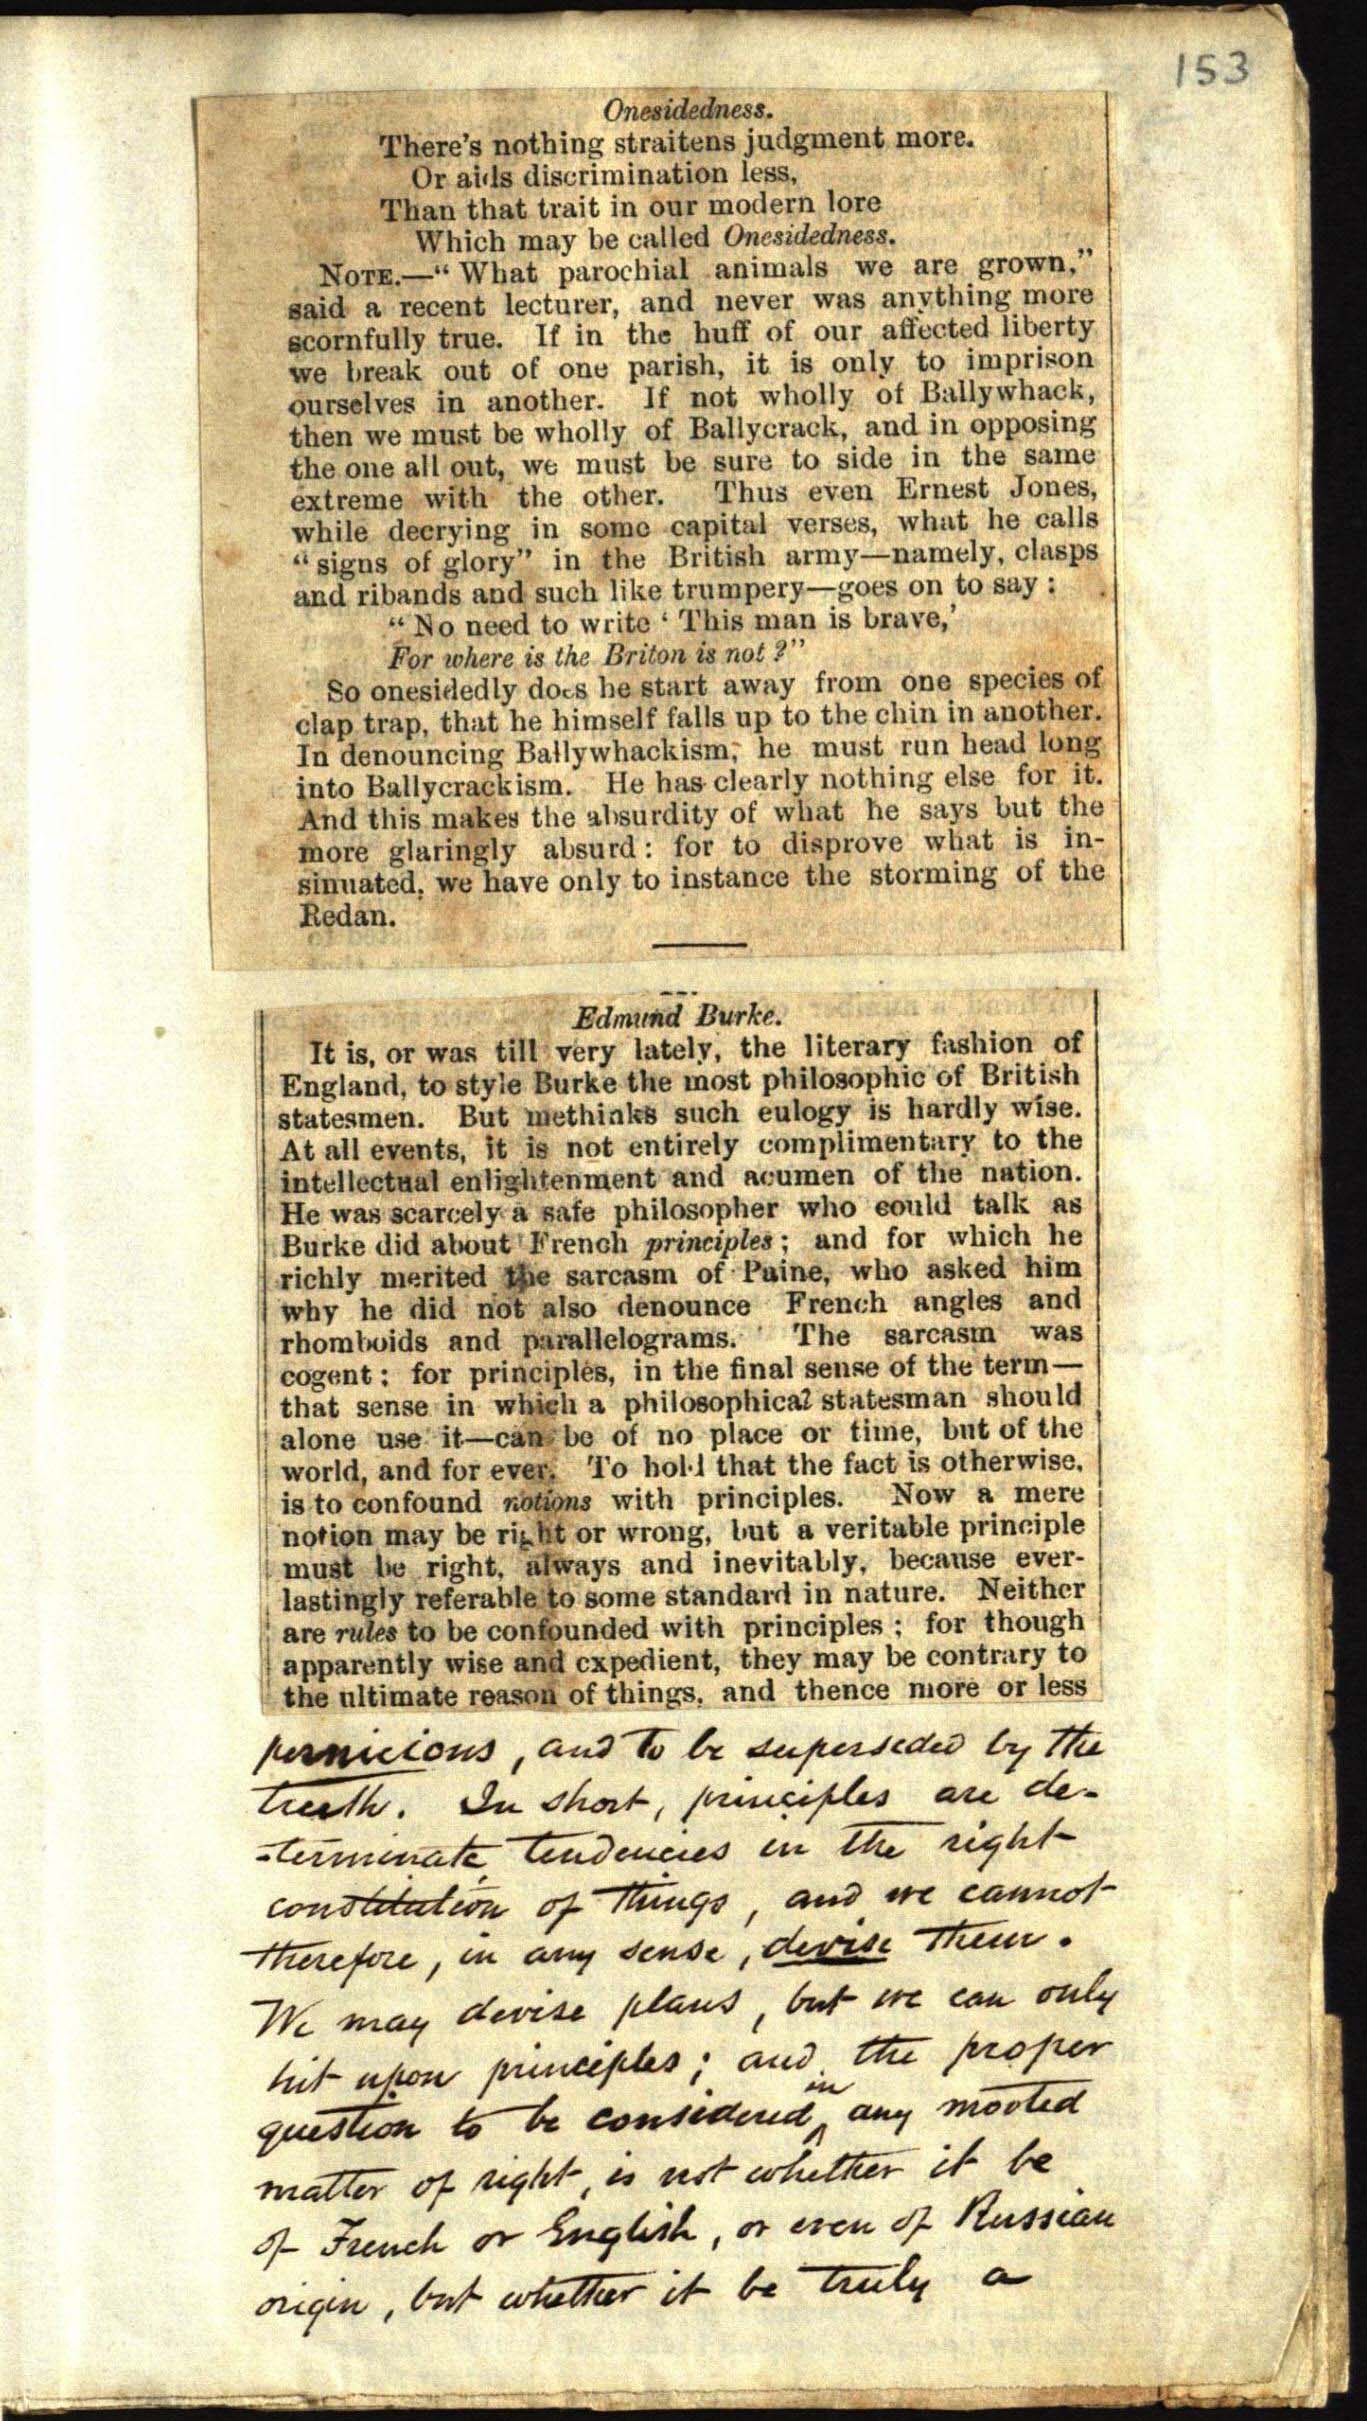 153
Onesidedness.
There's nothing straitens judgment more.
Or aids discrimination less,
Than that trait in our modern lore
Which may be called Onesidedness.
NOTE.—“What parochial animals we are grown,”
said a recent lecturer, and never was anything more
scornfully true. If in the huff of our affected liberty
we break out of one parish, it is only to imprison
ourselves in another. If not wholly of Ballywhack,
then we must be wholly of Ballycrack, and in opposing
the one all out, we must be sure to side in the same
extreme with the other. Thus even Ernest Jones,
while decrying in some capital verses, what he calls
“signs of glory” in the British army—namely, clasps
and ribands and such like trumpery—goes on to say:
“No need to write ‘This man is brave,’
For where is the Briton is not?”
So onesidedly does he start away from one species of
clap trap, that he himself falls up to the chin in another.
In denouncing Ballywhackism, he must run head long
into Ballycrackism. He has clearly nothing else for it.
And this makes the absurdity of what he says but the
more glaringly absurd: for to disprove what is in-
sinuated, we have only to instance the storming of the
Redan.
Edmund Burke.
It is, or was till very lately, the literary fashion of
England, to style Burke the most philosophic of British
statesmen. But methinks such eulogy is hardly wise.
At all events, it is not entirely complimentary to the
intellectual enlightenment and acumen of the nation.
He was scarcely a safe philosopher who could talk as
Burke did about French principles; and for which he
richly merited the sarcasm of Paine, who asked him
why he did not also denounce French angles and
rhomboids and parallelograms. The sarcasm was
cogent: for principles, in the final sense of the term—
that sense in which a philosophical statesman should
alone use it—can be of no place or time, but of the
world, and for ever. To hold that the fact is otherwise,
is to confound notions with principles. Now a mere
notion may be right or wrong, but a veritable principle
must be right, always and inevitably, because ever-
lastingly referable to some standard in nature. Neither
are rules to be confounded with principles; for though
apparently wise and expedient, they may be contrary to
the ultimate reason of things, and thence more or less
pernicious, and to be superseded by the
truth. In short, principles are de-
-terminate tendencies in the right
constitution of things, and we cannot
therefore, in any sense, devise them.
We may devise plans, but we can only
hit upon principles; and the proper
question to be considered in any mooted
matter of right, is not whether it be
of French or English, or even of Russian
origin, but whether it be truly a